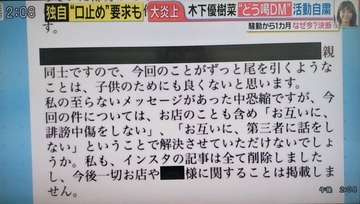 2:08
独自"口止め"要求も 大炎上 木下優樹菜"どう喝DM"活動自粛
騒動から1カ月 なぜ今?決断
す。
親
同士ですので、今回のことがずっと尾を引くような
ことは、子供のためにも良くないと思います。
私の至らないメッセージがあった中恐縮ですが、今
回の件については、お店のことも含め「お互いに、
誹謗中傷をしない」、「お互いに、第三者に話をし
ない」ということで解決させていただけないでしょ
うか。私も、インスタの記事は全て削除しました
し、今後一切お店や 様に関することは掲載しま
せん。
午後 2:08